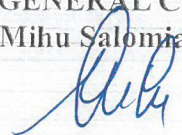 GENERAL C
Mihu Salomia